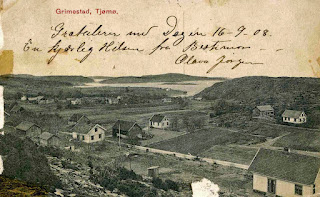 Grimestad, Tjømø.
Gratulerer med Dagen 16-9-08.
En hjertelig Hilsen fra
Olava